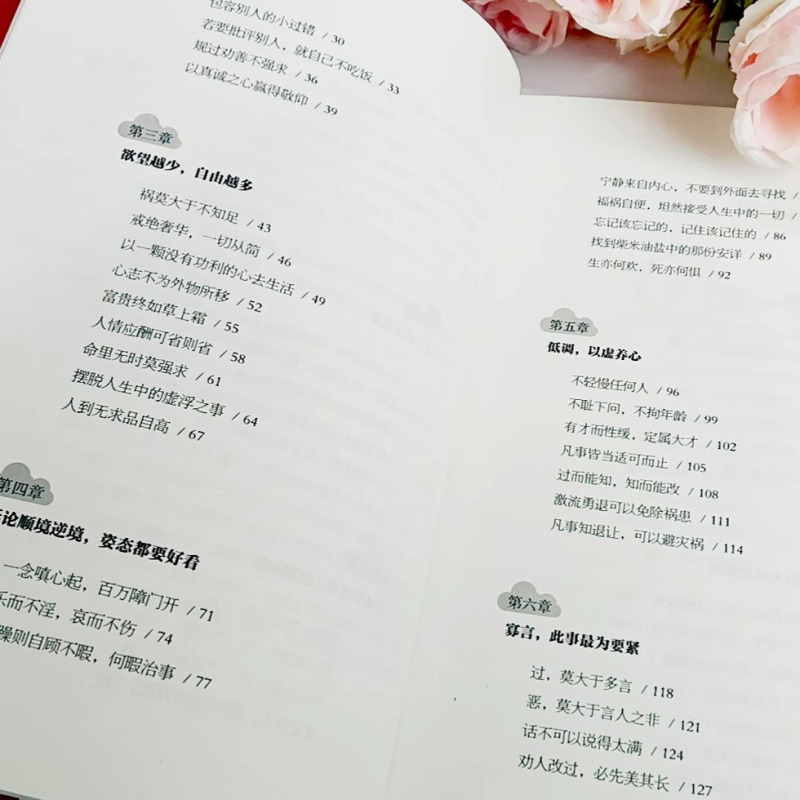 包容别人的小过错 / 30
若要批评别人，就自己不吃饭 / 33
规过劝善不强求 / 36
以真诚之心赢得敬仰 / 39
第三章
欲望越少，自由越多
祸莫大于不知足 / 43
戒绝奢华，一切从简 / 46
以一颗没有功利的心去生活 / 49
心志不为外物所移 / 52
富贵终如草上霜 / 55
人情应酬可省则省 / 58
命里无时莫强求 / 61
摆脱人生中的虚浮之事 / 64
人到无求品自高 / 67
第四章
论顺境逆境，姿态都要好看
一念嗔心起，百万障门开 / 71
乐而不淫，哀而不伤 / 74
躁则自顾不暇，何暇治事 / 77
宁静来自内心，不要到外面去寻找 /
福祸自便，坦然接受人生中的一切 /
忘记该忘记的，记住该记住的 / 86
找到柴米油盐中的那份安详 / 89
生亦何欢，死亦何惧 / 92
第五章
低调，以虚养心
不轻慢任何人 / 96
不耻下问，不拘年龄 / 99
有才而性缓，定属大才 / 102
凡事皆当适可而止 / 105
过而能知，知而能改 / 108
激流勇退可以免除祸患 / 111
凡事知退让，可以避灾祸 / 114
第六章
寡言，此事最为要紧
过，莫大于多言 / 118
恶，莫大于言人之非 / 121
话不可以说得太满 / 124
劝人改过，必先美其长 / 127